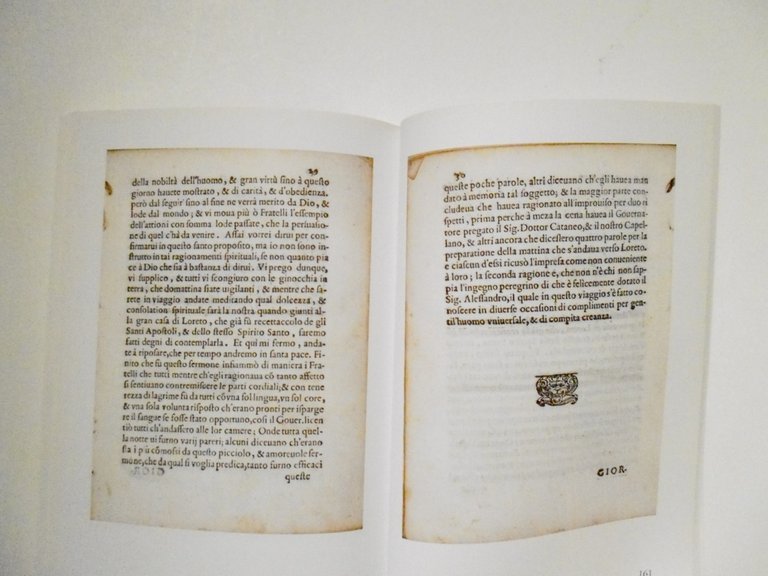 29
della nobiltà dell'huomo, & gran virtù sino à questo
giorno hauete mostrato, & di carità, & d'obedienza.
però dal seguir sino al fine ne verrà merito da Dio, &
lode dal mondo; & vi moua più ò Fratelli l'essempio
dell'attioni con somma lode passate, che la persuasione
di quel c'hà da venire. Assai vorrei dirui per con-
firmarui in questo santo proposito, ma io non sono in-
strutto in tai ragionamenti spirituali, se non quanto pia
ce à Dio che sia à bastanza di dirui. Vi prego dunque,
vi supplico, & tutti vi scongiuro con le ginocchia in
terra, che domattina siate uigilanti, & mentre che sa-
rete in viaggio andate meditando qual dolcezza, &
consolation spirituale sarà la nostra quando giunti al-
la gran casa di Loreto, che già fù recettacolo de gli
Santi Apostoli, & dello stesso Spirito Santo, saremo
fatti degni di contemplarla. Et qui mi fermo, anda-
te à riposare, che per tempo andremo in santa pace. Fi-
nito che fù questo sermone infiammò di maniera i Fra-
telli che tutti mentre ch'egli ragionaua cō tanto affetto
si sentiuano contremiscere le parti cordiali; & con tene
rezza di lagrime fù da tutti cōvna sol lingua, vn sol core,
& vna sola volunta risposto ch'erano pronti per isparge
re il sangue se fosse stato opportuno, così il Gouer. licen
tiò tutti ch'andassero alle lor camere; Onde tutta quel-
la notte ui furno varij pareri; alcuni diceuano ch'erano
sta i più cōmossi da questo picciolo, & amoreuole ser-
mone, che da qual si voglia predica, tanto furno efficaci
queste
30
queste poche parole, altri diceuano ch'egli hauea man
dato à memoria tal soggetto; & la maggior parte con-
cludeua che hauea ragionato all improuiso per duo ri
spetti, prima perche à meza la cena hauea il Gouerna-
tore pregato il Sig. Dottor Cataneo, & il nostro Capel-
lano, & altri ancora che dicessero quattro parole per la
preparatione della mattina che s'andaua verso Loreto.
e ciascun d'essi ricusò l'impresa come non conueniente
à loro; la seconda ragione è, che non n'è chi non sap-
pia l'ingegno peregrino di che è felicemente dotato il
Sig. Alessandro, il quale in questo viaggio s'è fatto co-
noscere in diuerse occasioni di complimenti per gen-
til'huomo vniuersale, & di compita creanza.
GIOR-
161